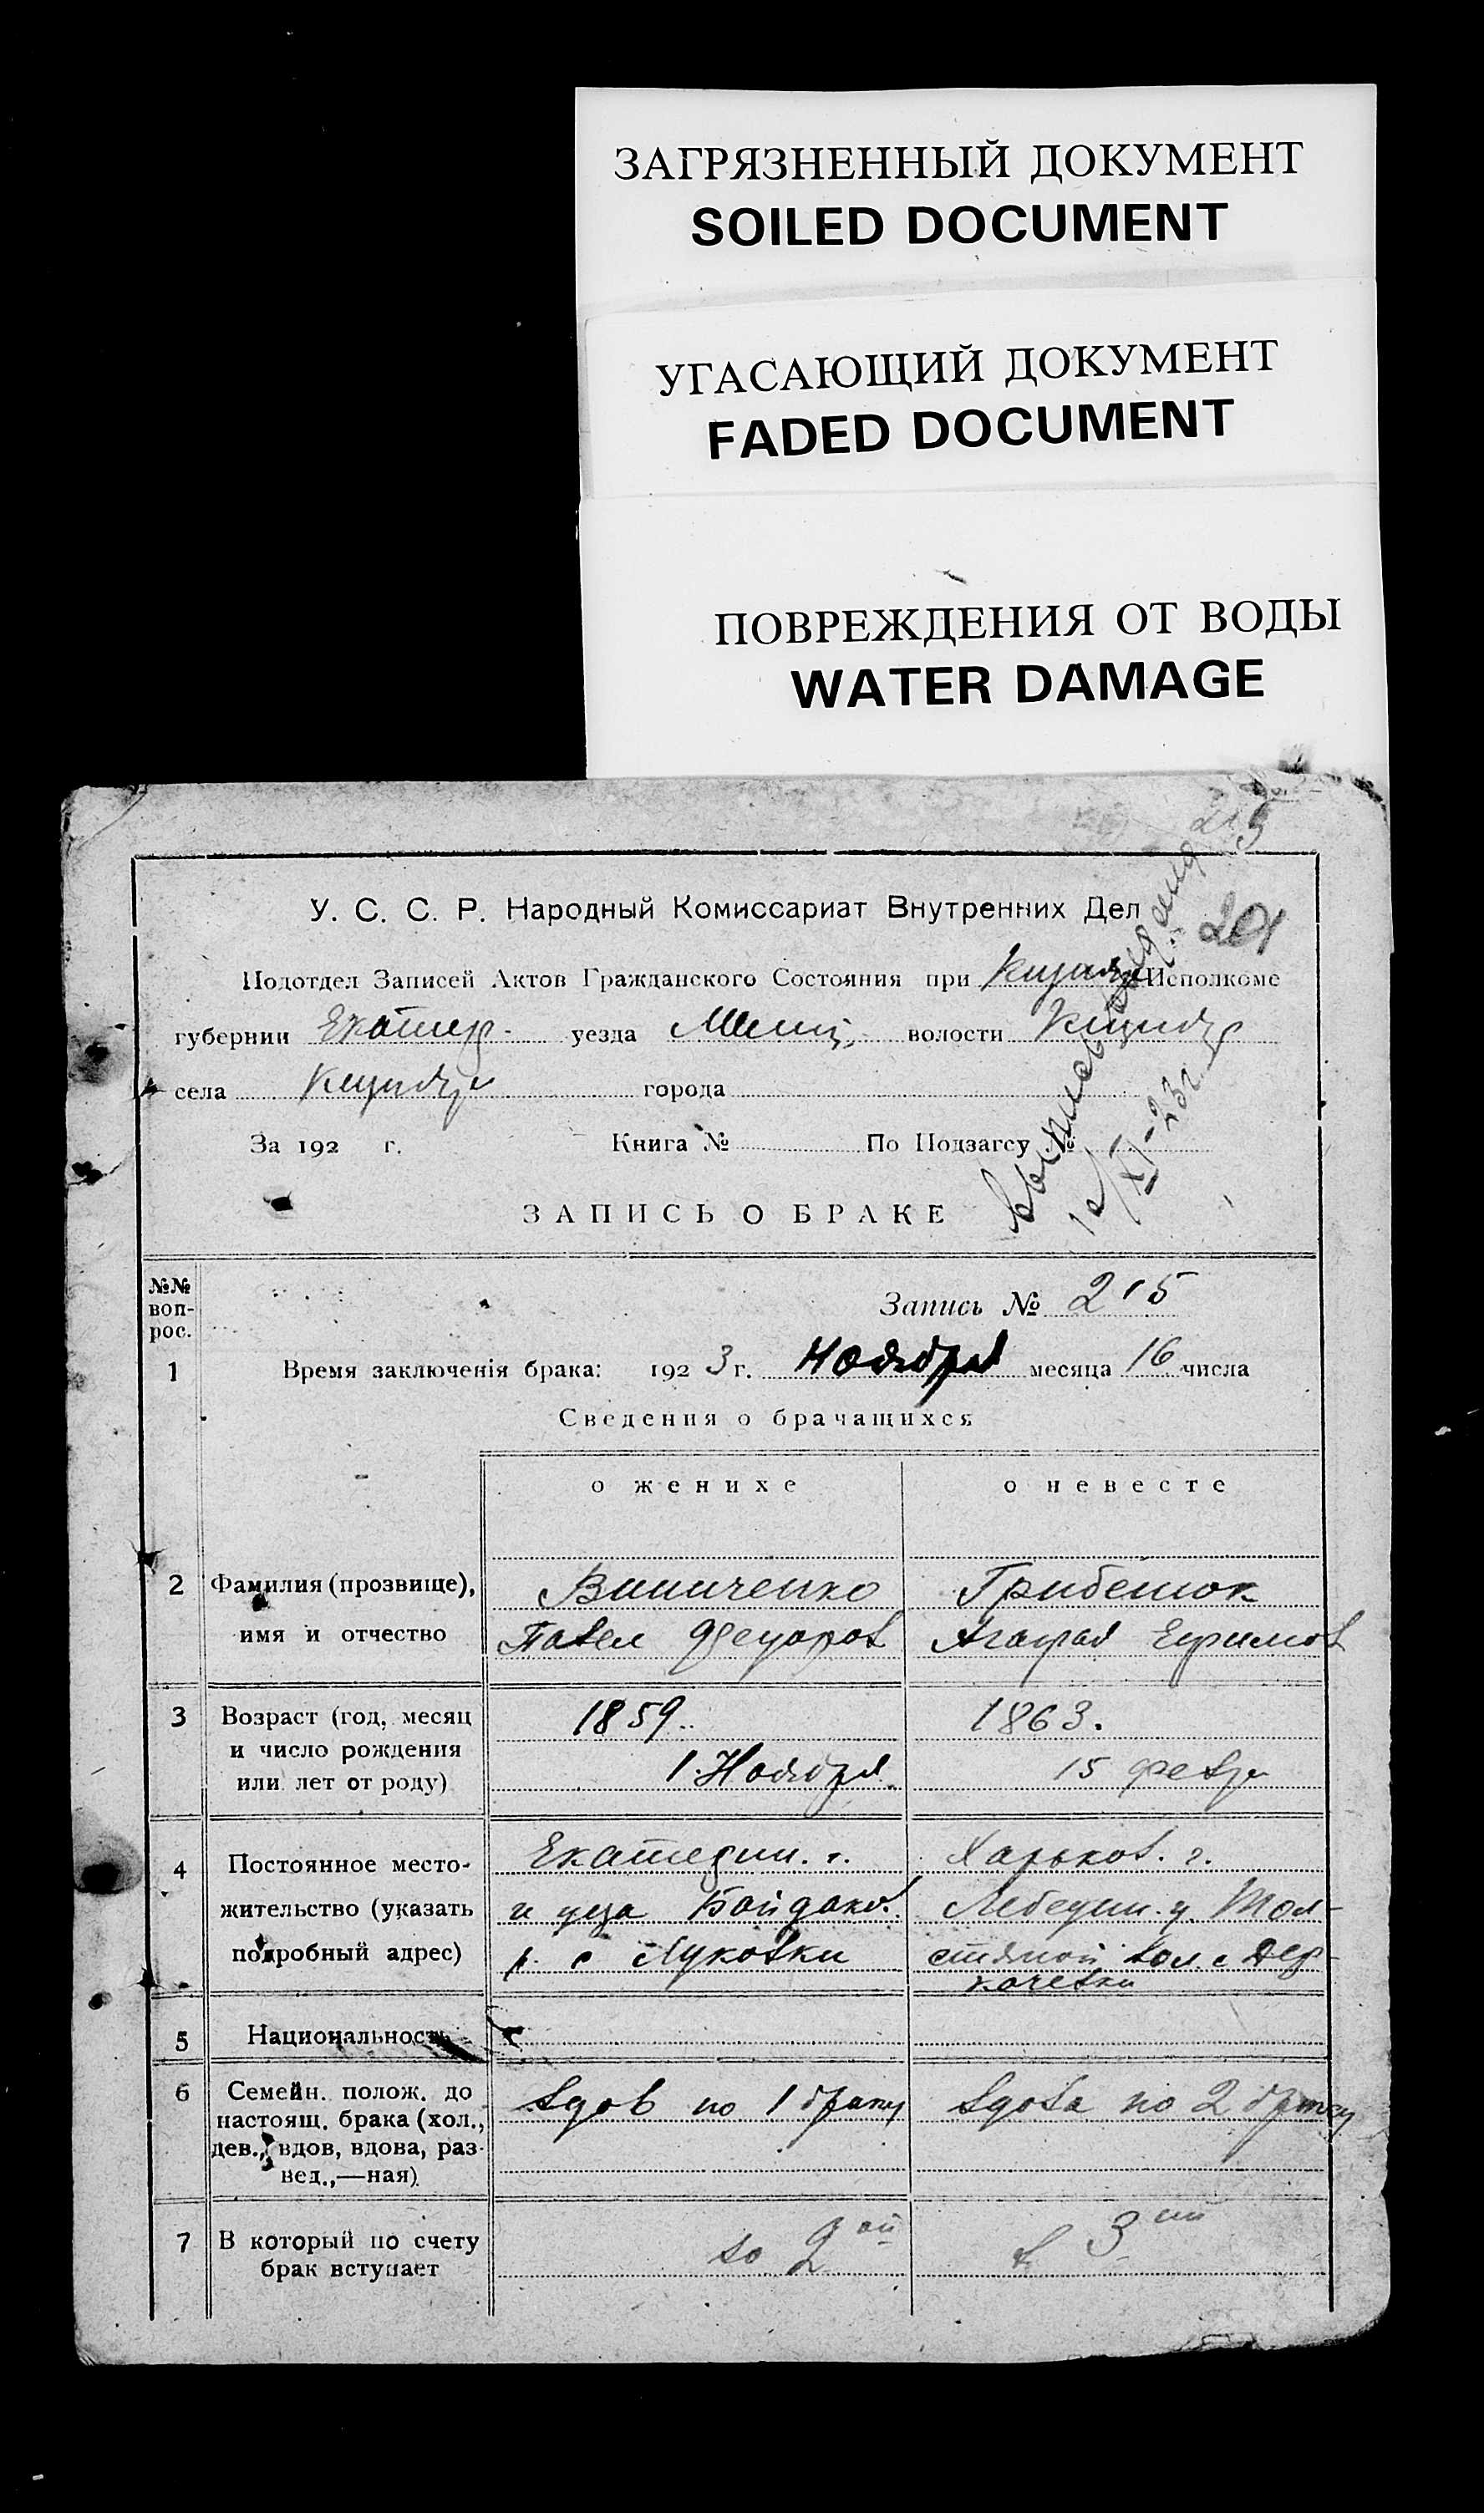 ЗАГРЯЗНЕННЫЙ ДОКУМЕНТ
SOILED DOCUMENT
УГАСАЮЩИЙ ДОКУМЕНТ
FADED DOCUMENT
ПОВРЕЖДЕНИЯ ОТ ВОДЫ
WATER DAMAGE
215
201
У. С. С. Р. Народный Комиссариат Внутренних Дел
Подотдел Записей Актов Гражданского Состояния при Исполкоме
губернии Екатер. уезда волости
села города
За 192 г. Книга № По Подзагсу №
ЗАПИСЬ О БРАКЕ
№№ воп-
рос.
Запись № 215
1 Время заключенія брака: 1923 г. Ноября месяца 16 числа
Сведения о брачащихся
о женихе о невесте
2 Фамилия (прозвище), Виниченко Грибенюк
имя и отчество Павел Федоров Агафая Ефимов
3 Возраст (год, месяц 1859. 1863.
и число рождения
или лет от роду) 1. Ноября 15 февр
4 Постоянное место- Екатерин. г. Харьков. г.
жительство (указать и уезда Байдаков. Лебедин. у. Тол-
подробный адрес) р. с Луковки стянской вол. с Дер-
качевки
5 Национальность
6 Семейн. полож. до вдов по 1 браку вдова по 2 браку
настоящ. брака (хол.,
дев., вдов, вдова, раз-
вед.,—ная)
7 В который по счету во 2ой в 3ий
брак вступает